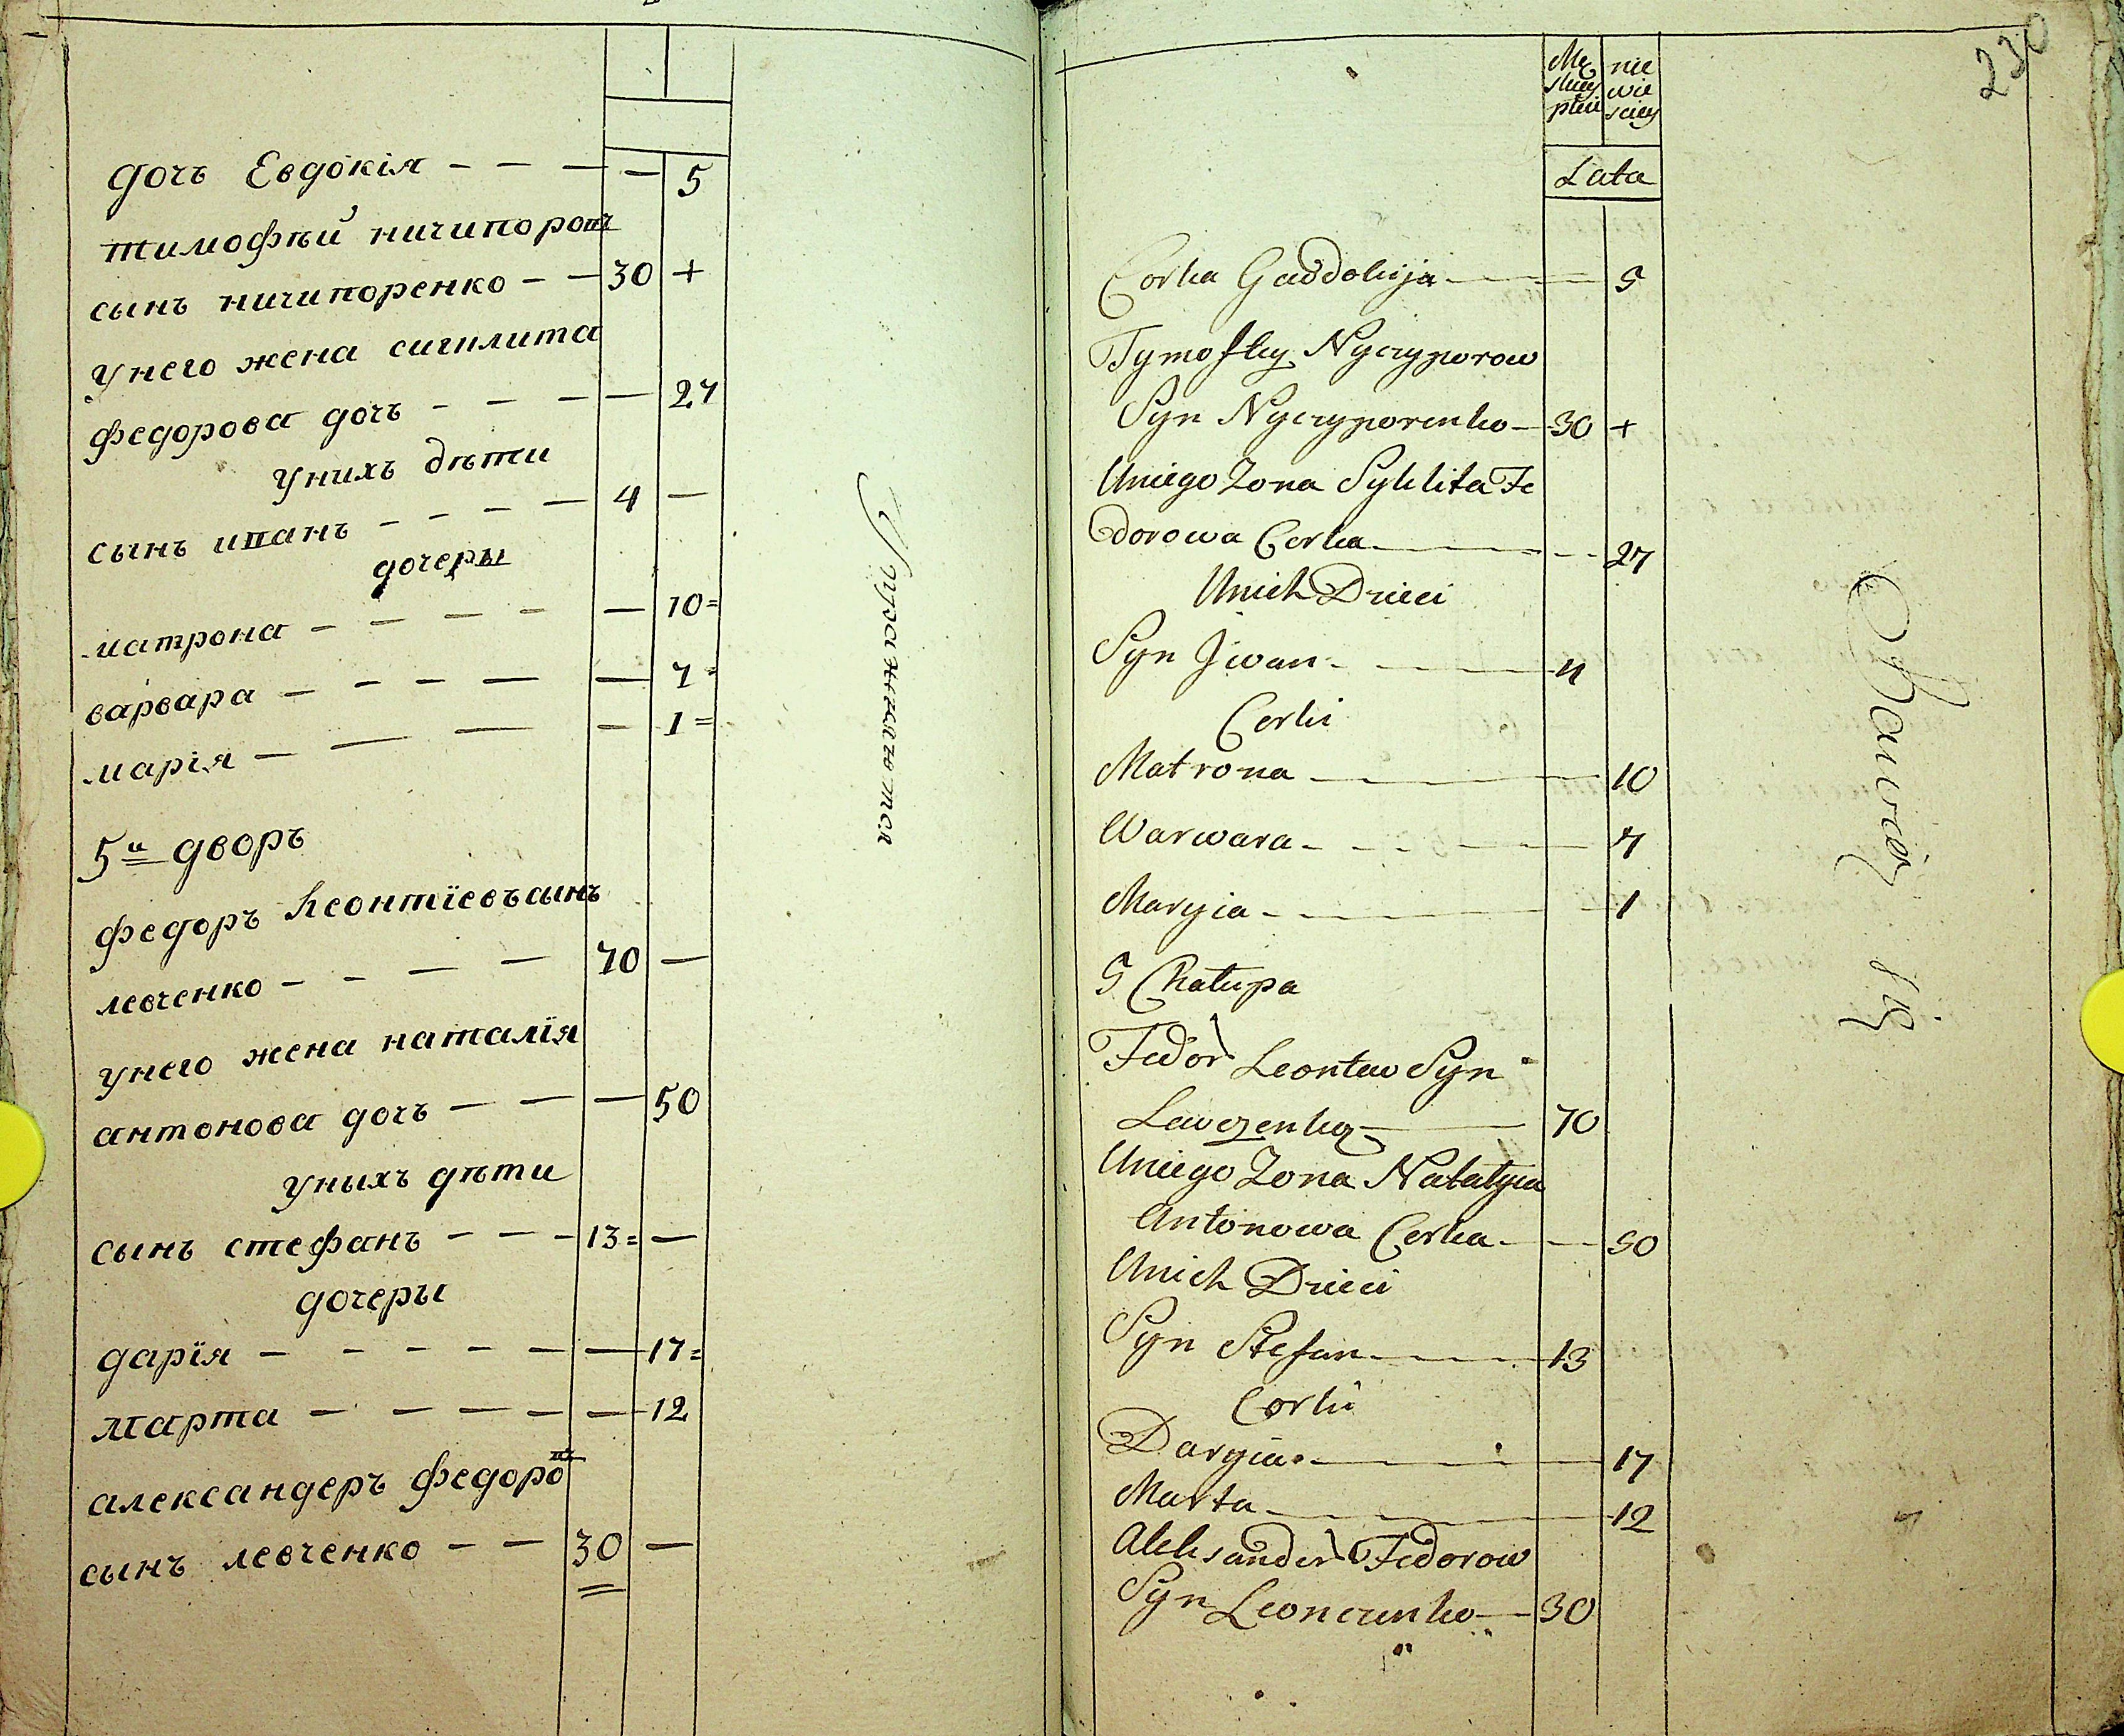 дочъ Евдокія - - - - 5
тимофѣй ничипоровъ
сынъ ничипоренко - - 30 +
унего жена сигклита
федорова дочъ - - - - 27
унихъ дѣти
сынъ иванъ - - - - 4 -
дочеры
матрона - - - - - 10=
варвара - - - - - 7=
марія - - - - 1=
5й дворъ
федоръ Леонтїевъ сынъ
левченко - - - - 70 -
унего жена наталїя
антонова дочъ - - - 50
уныхъ дѣти
сынъ стефанъ - - - 13= -
дочеры
дарїя - - - - - - 17=
марта - - - - - 12
александеръ федоровъ
сынъ левченко - - 30 -
Упражняются
230
Męskiey płeci
niewiesciey
Lata
Corka Gaudokija - 5
Tymofiey Nyczyporow
Syn Nyczyporenko - 30 +
Uniego Zona Syklita Fe
dorowa Corka - 27
Unich Dzieci
Syn Jwan - 4
Corki
Matrona - 10
Warwara - 7
Maryia - 1
5 Chałupa
Fedor Leontew Syn
Lewczenko - 70
Uniego Zona Natalyia
Antonowa Corka - 50
Unich Dzieci
Syn Stefan - 13
Corki
Daryia - 17
Marta - 12
Aleksander Fedorow
Syn Leonczenko - 30